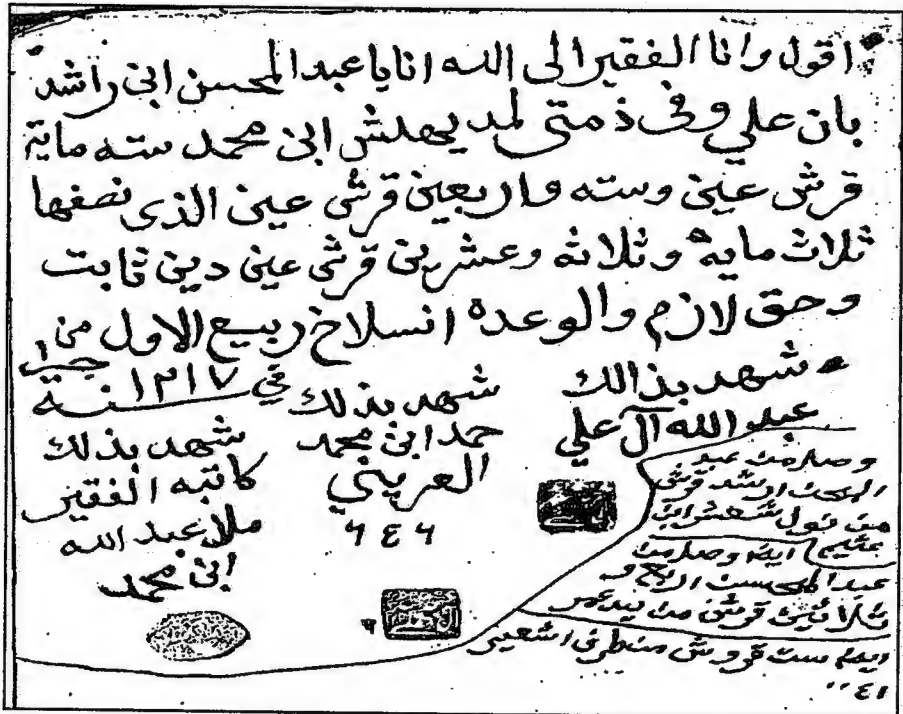 اقول وانا الفقير الى الله انايا عبد المحسن ابن راشد
بان علي وفى ذمتى لمديهلش ابن محمد سته ماية
قرش عين وسته واربعين قرش عين الذى نصفها
ثلاث مايه وثلاثه وعشرين قرش عين دين ثابت
وحق لازم والوعده انسلاخ ربيع الاول من
في ١٢١٧ سنة
شهد بذالك
عبد الله آل علي
شهد بذلك
حمد ابن محمد
العريني
٦٤٦
شهد بذلك
كاتبه الفقير
ملا عبد الله
ابن محمد
وصل من عبد
ايضا وصل من
عبد المحسن اربع و
ثلاثين قرش من يد عمر
ايضا ست قروش
٤١